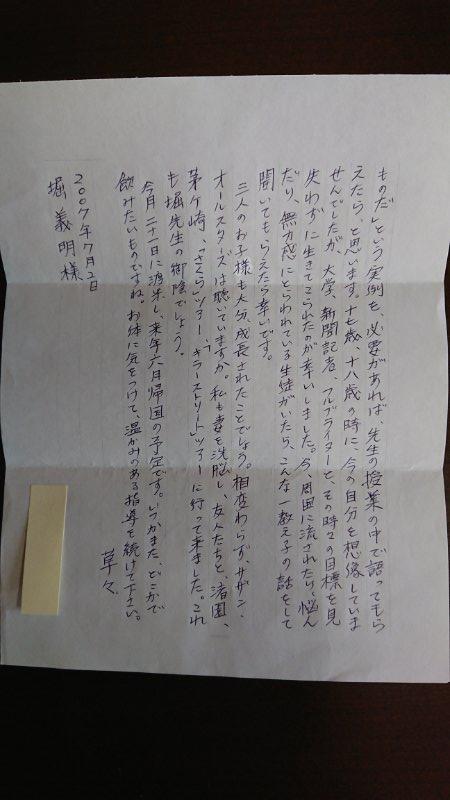 ものだ」という実例を、必要があれば、先生の授業の中で語ってもら
えたら、と思います。十七歳、十八歳の時に、今の自分を想像していま
せんでしたが、大学、新聞記者、フルブライターと、その時々の目標を見
失わずに生きてこられたのが幸いしました。今、周囲に流されたり、悩ん
だり、無力感にとらわれている生徒がいたら、こんな一教え子の話をして
聞いてもらえたら幸いです。
三人のお子様も大分、成長されたことでしょう。相変わらず、サザン・
オールスターズは聴いていますか。私も妻を洗脳し、友人たちと、渚園、
茅ヶ崎、「さくら」ツアー、「キラーストリート」ツアーに行って来ました。これ
も堀先生の御陰でしょう。
今月二十一日に渡米し、来年六月帰国の予定です。いつかまた、どこかで
飲みたいものですね。お体に気をつけて、温かみのある指導を続けて下さい。
草々
2007年7月2日
堀 義明様